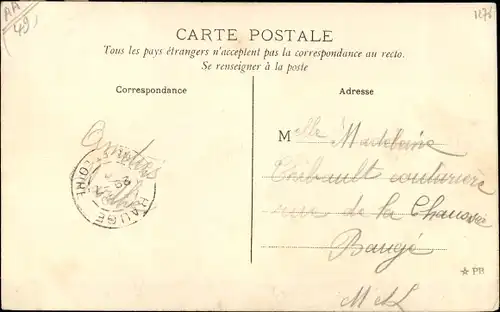 AA
49
1275
CARTE POSTALE
Tous les pays étrangers n'acceptent pas la correspondance au recto.
Se renseigner à la poste
Correspondance
Adresse
Amitiés
BAUGÉ
LOIRE
Mlle Madeleine
Thibault couturière
rue de la Chaussée
Baugé
M & L
★ PB